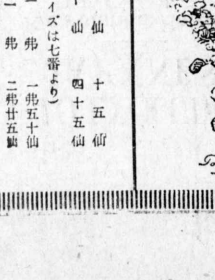 仙 十五仙
仙 四十五仙
イズは七番より)
一弗 一弗五十仙
一弗 二弗廿五仙